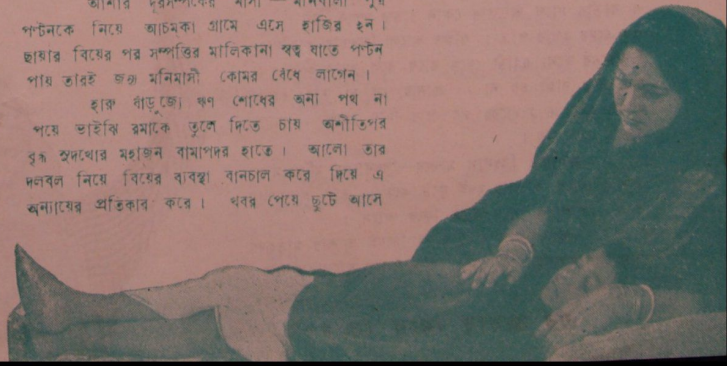 আশার দূরসম্পর্কের মাসী — মনিমালা পুত্র
পণ্টনকে নিয়ে আচমকা গ্রামে এসে হাজির হন।
ছায়ার বিয়ের পর সম্পত্তির মালিকানা স্বত্ব যাতে পণ্টন
পায় তারই জন্য মনিমাসী কোমর বেঁধে লাগেন।
হারু বাঁড়ুজ্যে ঋণ শোধের অন্য পথ না
পয়ে ভাইঝি রমাকে তুলে দিতে চায় অশীতিপর
বৃদ্ধ সুদখোর মহাজন বামাপদর হাতে। আলো তার
দলবল নিয়ে বিয়ের ব্যবস্থা বানচাল করে দিয়ে এ
অন্যায়ের প্রতিকার করে। খবর পেয়ে ছুটে আসে